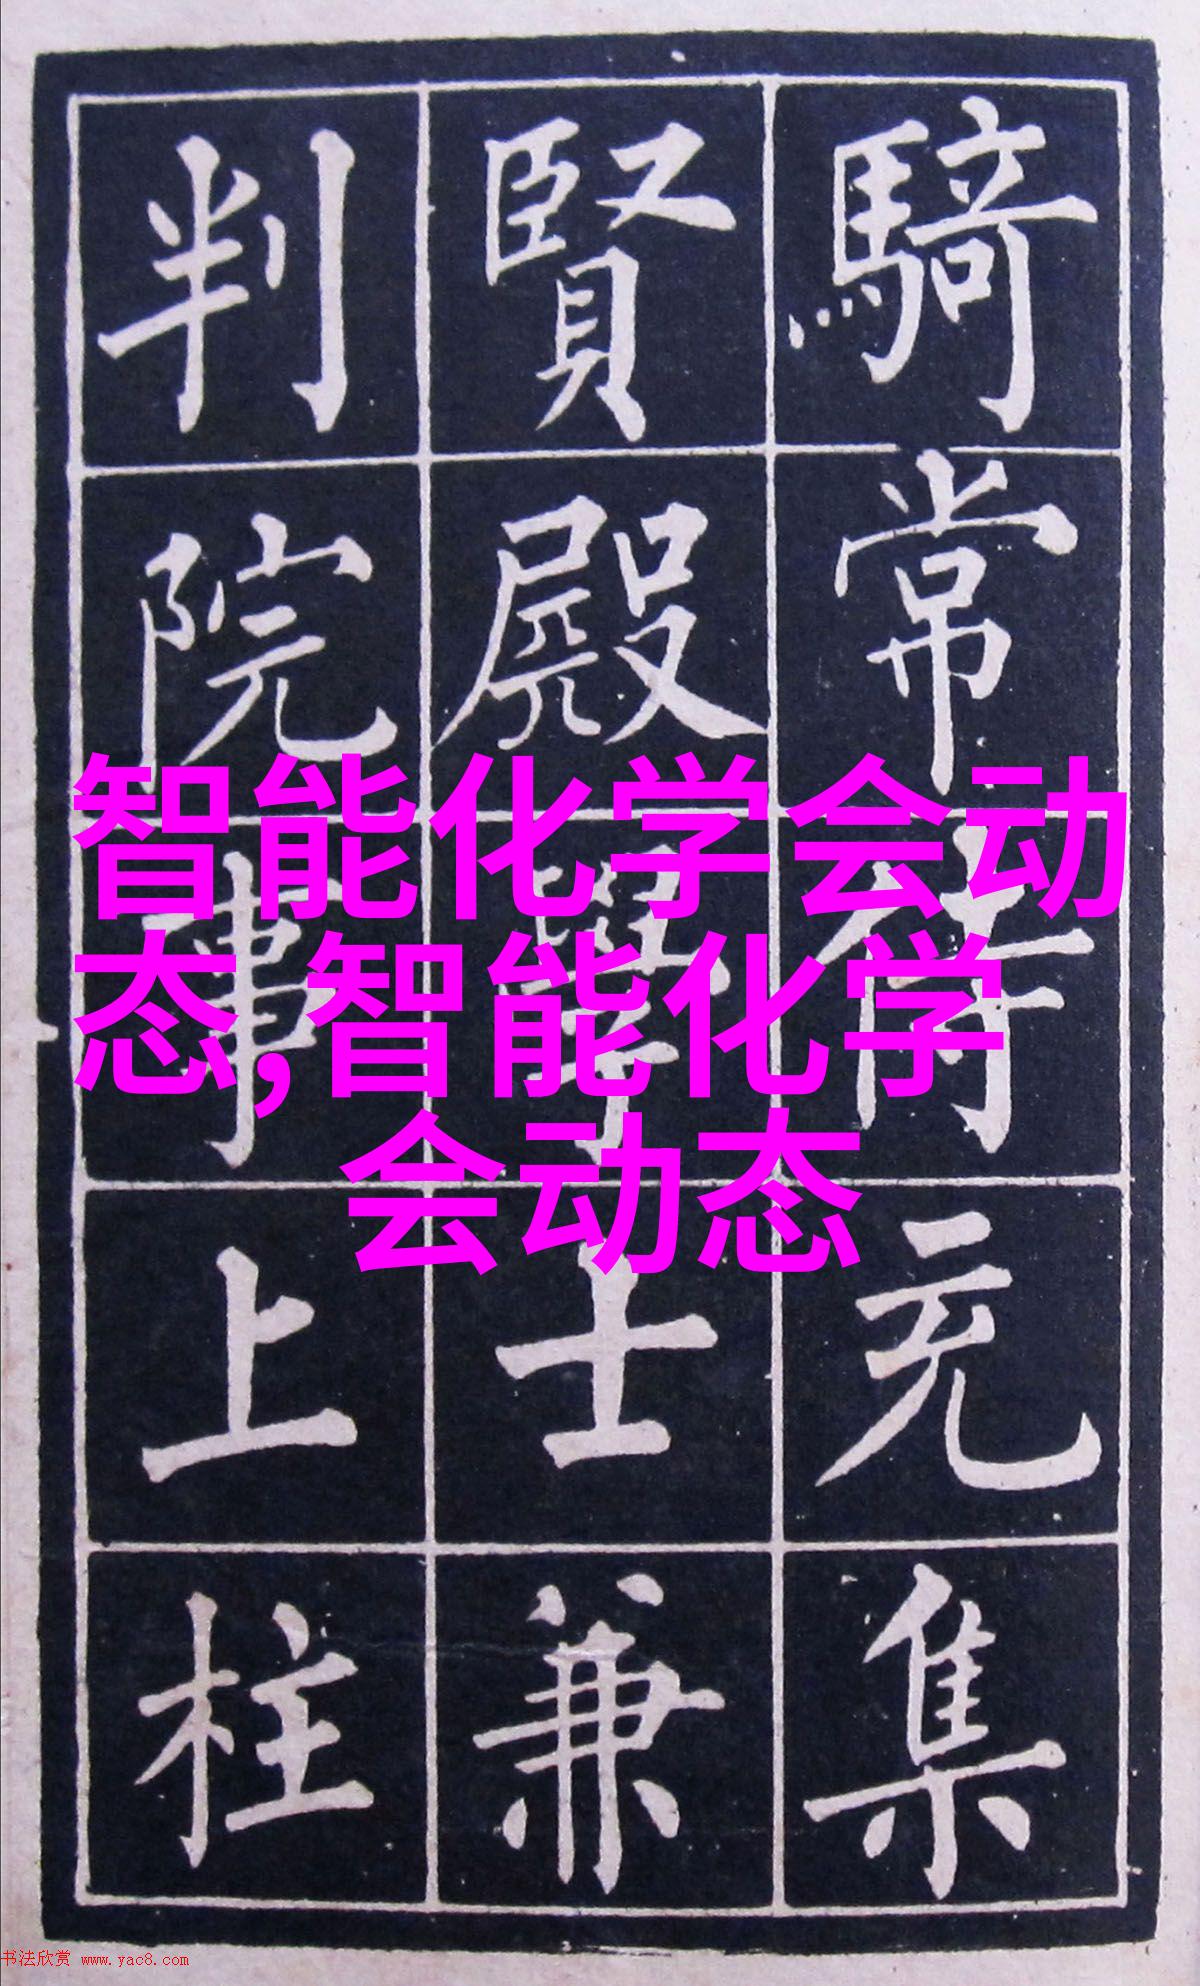 騎常侍充集
賢殿學士兼
判院事上柱
智能化学会动
态,智能化学
会动态
书法欣赏 www.yac8.com